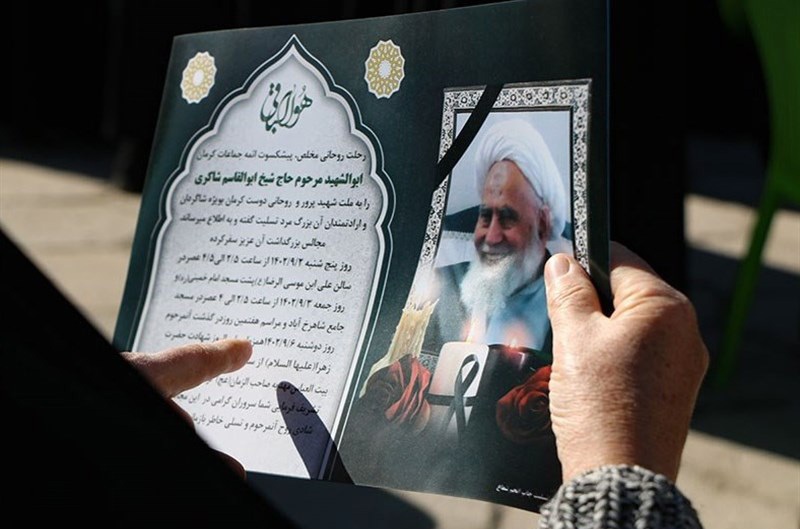 هوالباقی
رحلت روحانی مخلص، پیشکسوت ائمه جماعات کرمان
ابوالشهید مرحوم حاج شیخ ابوالقاسم شاکری
را به ملت شهید پرور و روحانی دوست کرمان بویژه شاگردان
و ارادتمندان آن بزرگ مرد تسلیت گفته و به اطلاع میرساند.
مجالس بزرگداشت آن عزیز سفر کرده
روز پنج شنبه ۱۴۰۲/۹/۲ از ساعت ۲/۵ الی ۴/۵ عصر در
سالن علی ابن موسی الرضا(ع) پشت مسجد امام خمینی(ره) و
روز جمعه ۱۴۰۲/۹/۳ از ساعت ۲/۵ الی ۴ عصر در مسجد
جامع شاهرخ آباد و مراسم هفتمین روز در گذشت آنمرحوم
روز دوشنبه ۱۴۰۲/۹/۶ همز روز شهادت حضرت
زهرا(علیها السلام) از س
بیت العباس مهدیه صاحب الزمان(عج)
تشریف فرمایی شما سروران گرامی در این مج
شادی روح آنمرحوم و تسلی خاطر بازما